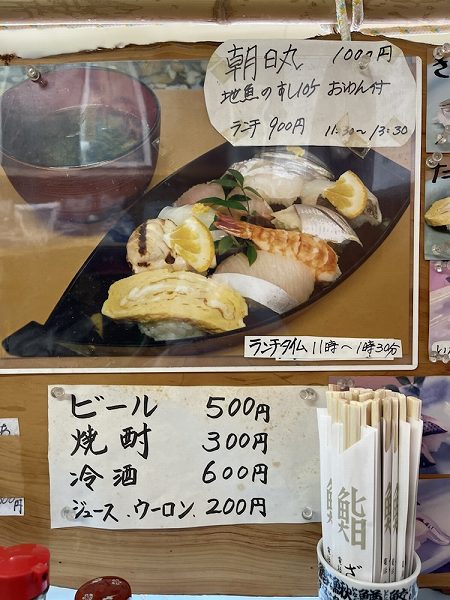 朝日丸 1000円
地魚のすし10ケ おわん付
ランチ 900円 11:30〜13:30
ランチタイム 11時〜1時30分
ビール 500円
焼酎 300円
冷酒 600円
ジュース.ウーロン. 200円
鮨